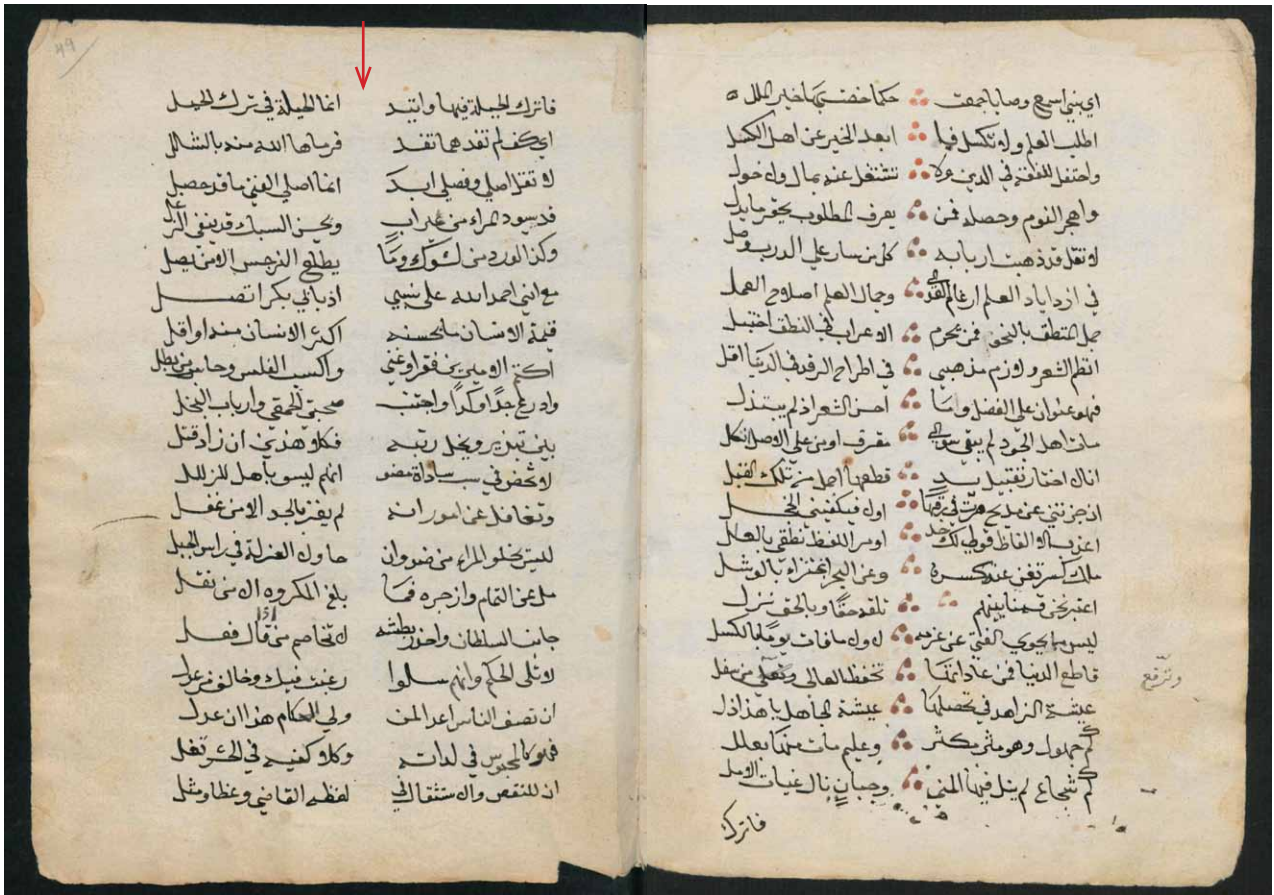 اي بني اسمع وصايا جمعت حكما خصت بها خير الملل
اطلب العلم ولا تكسل فما ابعد الخير عن اهل الكسل
واحتفل للفقه في الدين ولا تشتغل عنه بمال وخول
واهجر النوم وحصله فمن يعرف المطلوب يحقر ما يذل
لا تقل قد ذهبت اربابه كل من سار على الدرب وصل
في ازدياد العلم ارغام العدى وجمال العلم اصلاح العمل
جمل المنطق بالنحو فمن يحرم الاعراب في النطق اختبل
انظم الشعر ولازم مذهبي في اطراح الرفد في الدنيا اقل
فهو عنوان على الفضل وما احسن الشعر اذ لم يبتذل
مات اهل الجود لم يبق سوى مقرف او من على الاصل اتكل
انا لا اختار تقبيل يد قطعها اجمل من تلك القبل
ان جزتني عن مديح صرت في رقها اولا فيكفيني الخجل
اعذب الالفاظ قولي لك خذ وامر اللفظ نطقي بالعل
ملك كسرى تغن عنه كسرة وعن البحر اجتزاء بالوشل
اعتبر نحن قسمنا بينهم تلقه حقا وبالحق نزل
ليس ما يحوي الفتى عن عزمه لا ولا ما فات يوما بالكسل
قاطع الدنيا فمن عاداتها تخفض العالي وتعلي من سفل
وترفع
عيشة الزاهد في تحصيلها عيشة الجاهل بل هذا اذل
كم جهول وهو مثر مكثر وعليم مات منها بعلل
كم شجاع لم ينل فيها المنى وجبان نال غيات الامل
فاترك
49
فاترك الحيلة فيها واتيد انما الحيلة في ترك الحيل
اي كف لم تفد مما تفد فرماها الله منه بالشلل
لا تقل اصلي وفصلي ابدا انما اصل الفتى ما قد حصل
قد يسود المراء من غير اب وبحسن السبك قد ينفى الزغل
وكذا الورد من الشوك وما يطلع النرجس الا من بصل
مع اني احمد الله على نسبي اذ بابي بكر اتصل
قيمة الانسان ما يحسنه اكثر الانسان منه او اقل
اكتم الامرين فقرا وغنى واكسب الفلس وحاسب من بطل
وادرع جدا وكدا واجتنب صحبة الحمقى وارباب البخل
بين تبذير وبخل رتبه فكلا هذين ان زاد قتل
لا تخض في سب سادات مضو انهم ليسو باهل للزلل
وتغافل عن امور انه لم يفز بالحمد الا من غفل
ليس يخلو المراء من ضد وان حاول العزلة في راس الجبل
مل عن النمام وازجره فما بلغ المكروه الا من نقل
جانب السلطان واحذر بطشه لا تخاصم من اذا قال فعل
لا تلى الحكم وانهم سلوا رغبت فيك وخالف من عذل
ان نصف الناس اعدا لمن ولي الحكام هذا ان عدل
فهو كالمحبوس في لذاته وكلا كفيه في الحشر تغل
ان للنقص والاستثقال في لفظه القاضي وعظا ومثل